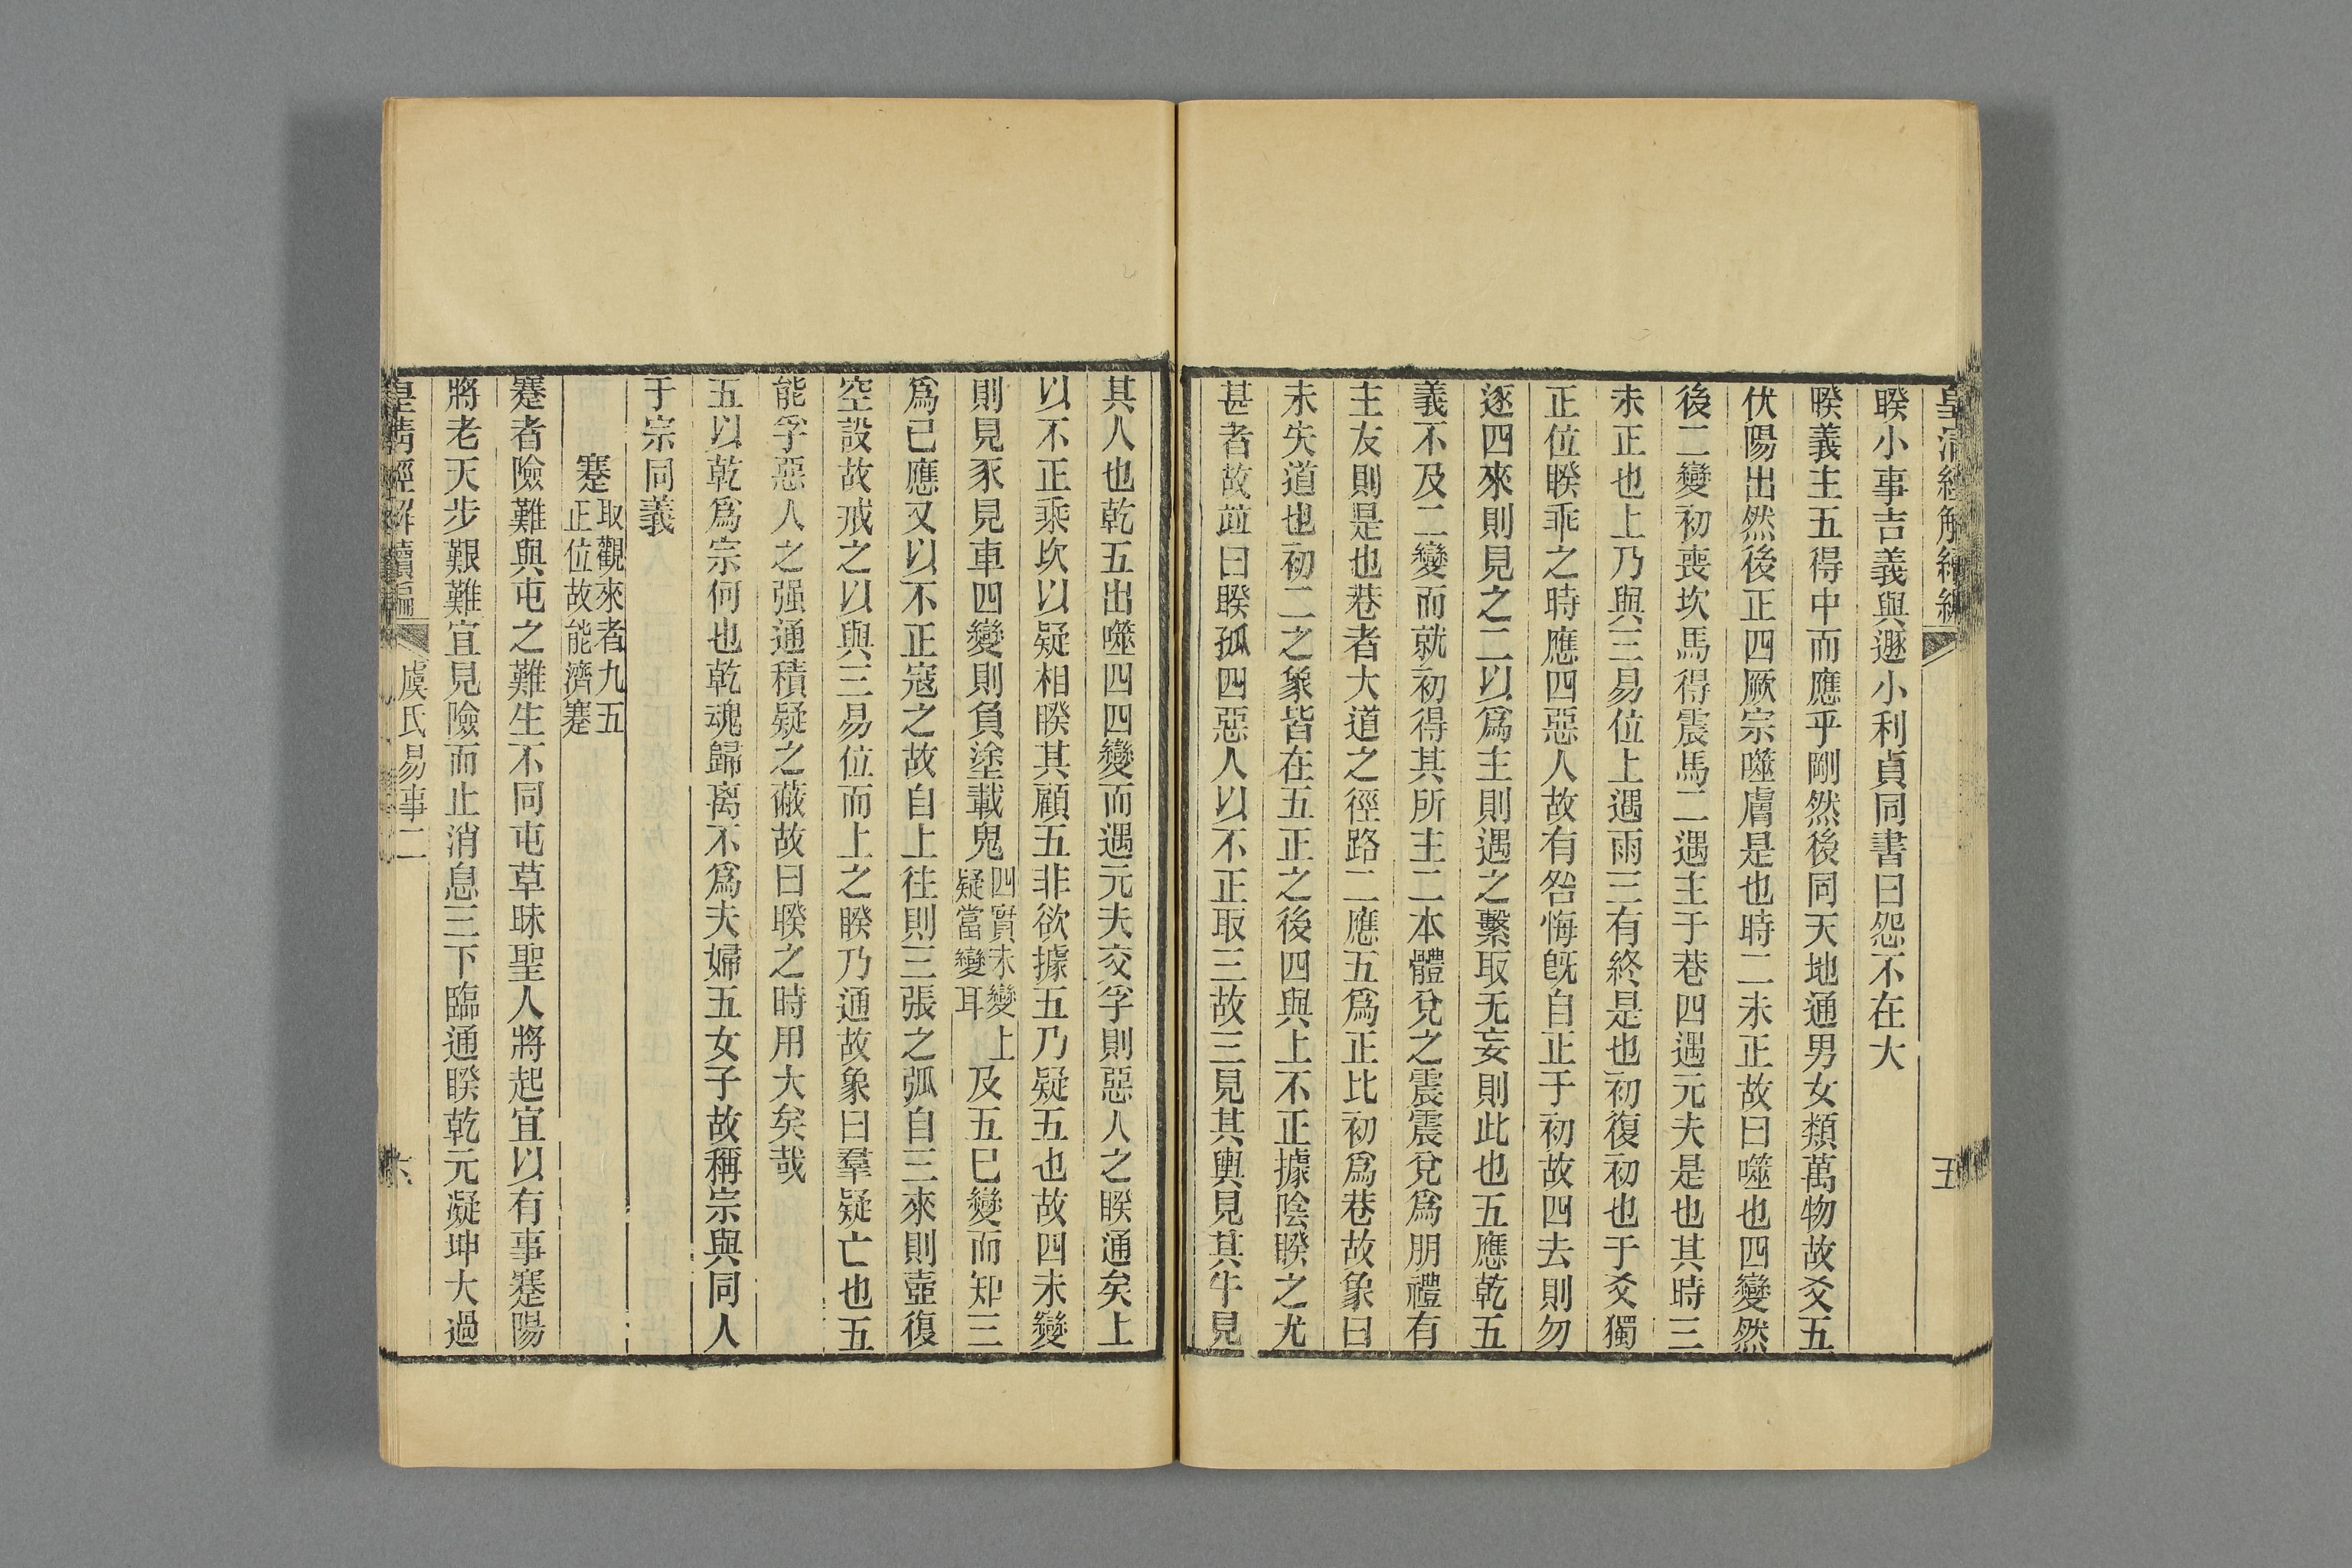 睽小事吉義與遯小利貞同書曰怨不在大
睽義主五得中而應乎剛然後同天地通男女類萬物故爻五
伏陽出然後正四厥宗噬膚是也時二未正故曰噬也四變然
後二變初喪坎馬得震馬二遇主于巷四遇元夫是也其時三
未正也上乃與三易位上遇雨三有終是也初復初也于爻獨
正位睽乖之時應四惡人故有咎悔旣自正于初故四去則勿
逐四來則見之二以爲主則遇之繫取无妄則此也五應乾五
義不及二變而就初得其所主二本體兌之震震兌爲朋禮有
主友則是也巷者大道之徑路二應五爲正比初爲巷故象曰
未失道也初二之象皆在五正之後四與上不正據陰睽之尤
甚者故竝曰睽孤四惡人以不正取三故三見其輿見其牛見
五
其人也乾五出噬四四變而遇元夫交孚則惡人之睽通矣上
以不正乘坎以疑相睽其顧五非欲據五乃疑五也故四未變
則見豕見車四變則負塗載鬼四實未變疑當變耳上及五巳變而知三
爲已應又以不正寇之故自上往則三張之弧自三來則壺復
空設故戒之以與三易位而上之睽乃通故象曰羣疑亡也五
能孚惡人之强通積疑之蔽故曰睽之時用大矣哉
五以乾爲宗何也乾魂歸离不爲夫婦五女子故稱宗與同人
于宗同義
蹇取觀來者九五正位故能濟蹇
蹇者險難與屯之難生不同屯草昧聖人將起宜以有事蹇陽
將老天步艱難宜見險而止消息三下臨通睽乾元凝坤大過
皇淸經解續編
虞氏易事二
六